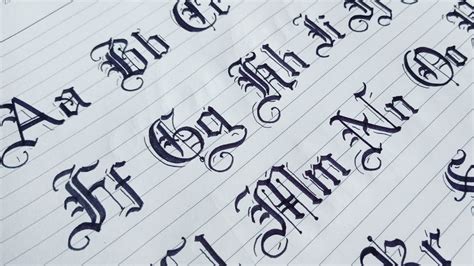 Aa Bb Cc
Ff Gg Hh Ii
Ll Mm Nn Oo
Rr